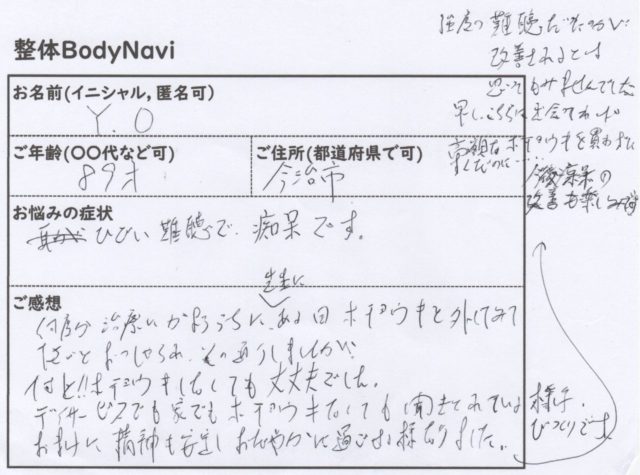 整体BodyNavi
お名前(イニシャル,匿名可)
Y.O
ご年齢(〇〇代など可)
89才
ご住所(都道府県で可)
今治市
お悩みの症状
ひどい難聴で、痴呆です。
ご感想
先生に
何度か治療にかようちに、ある日ホチョウキを外してみて
なさいとおっしゃられ、その通りしましたが、
何と!!ホチョウキなしでも大丈夫でした。
デイサービスでも家でもホチョウキなしでも聞きとれている様子。
びっくりです
おまけに精神も安定しおだやかに過ごせる様なりました。
強度の難聴だったのが
改善されるとは
思ってもみませんでした
早く、こちらに出会てれば
高額なホチョウキを買わなく
すんだのに……
今後痴呆の
改善も楽しみです